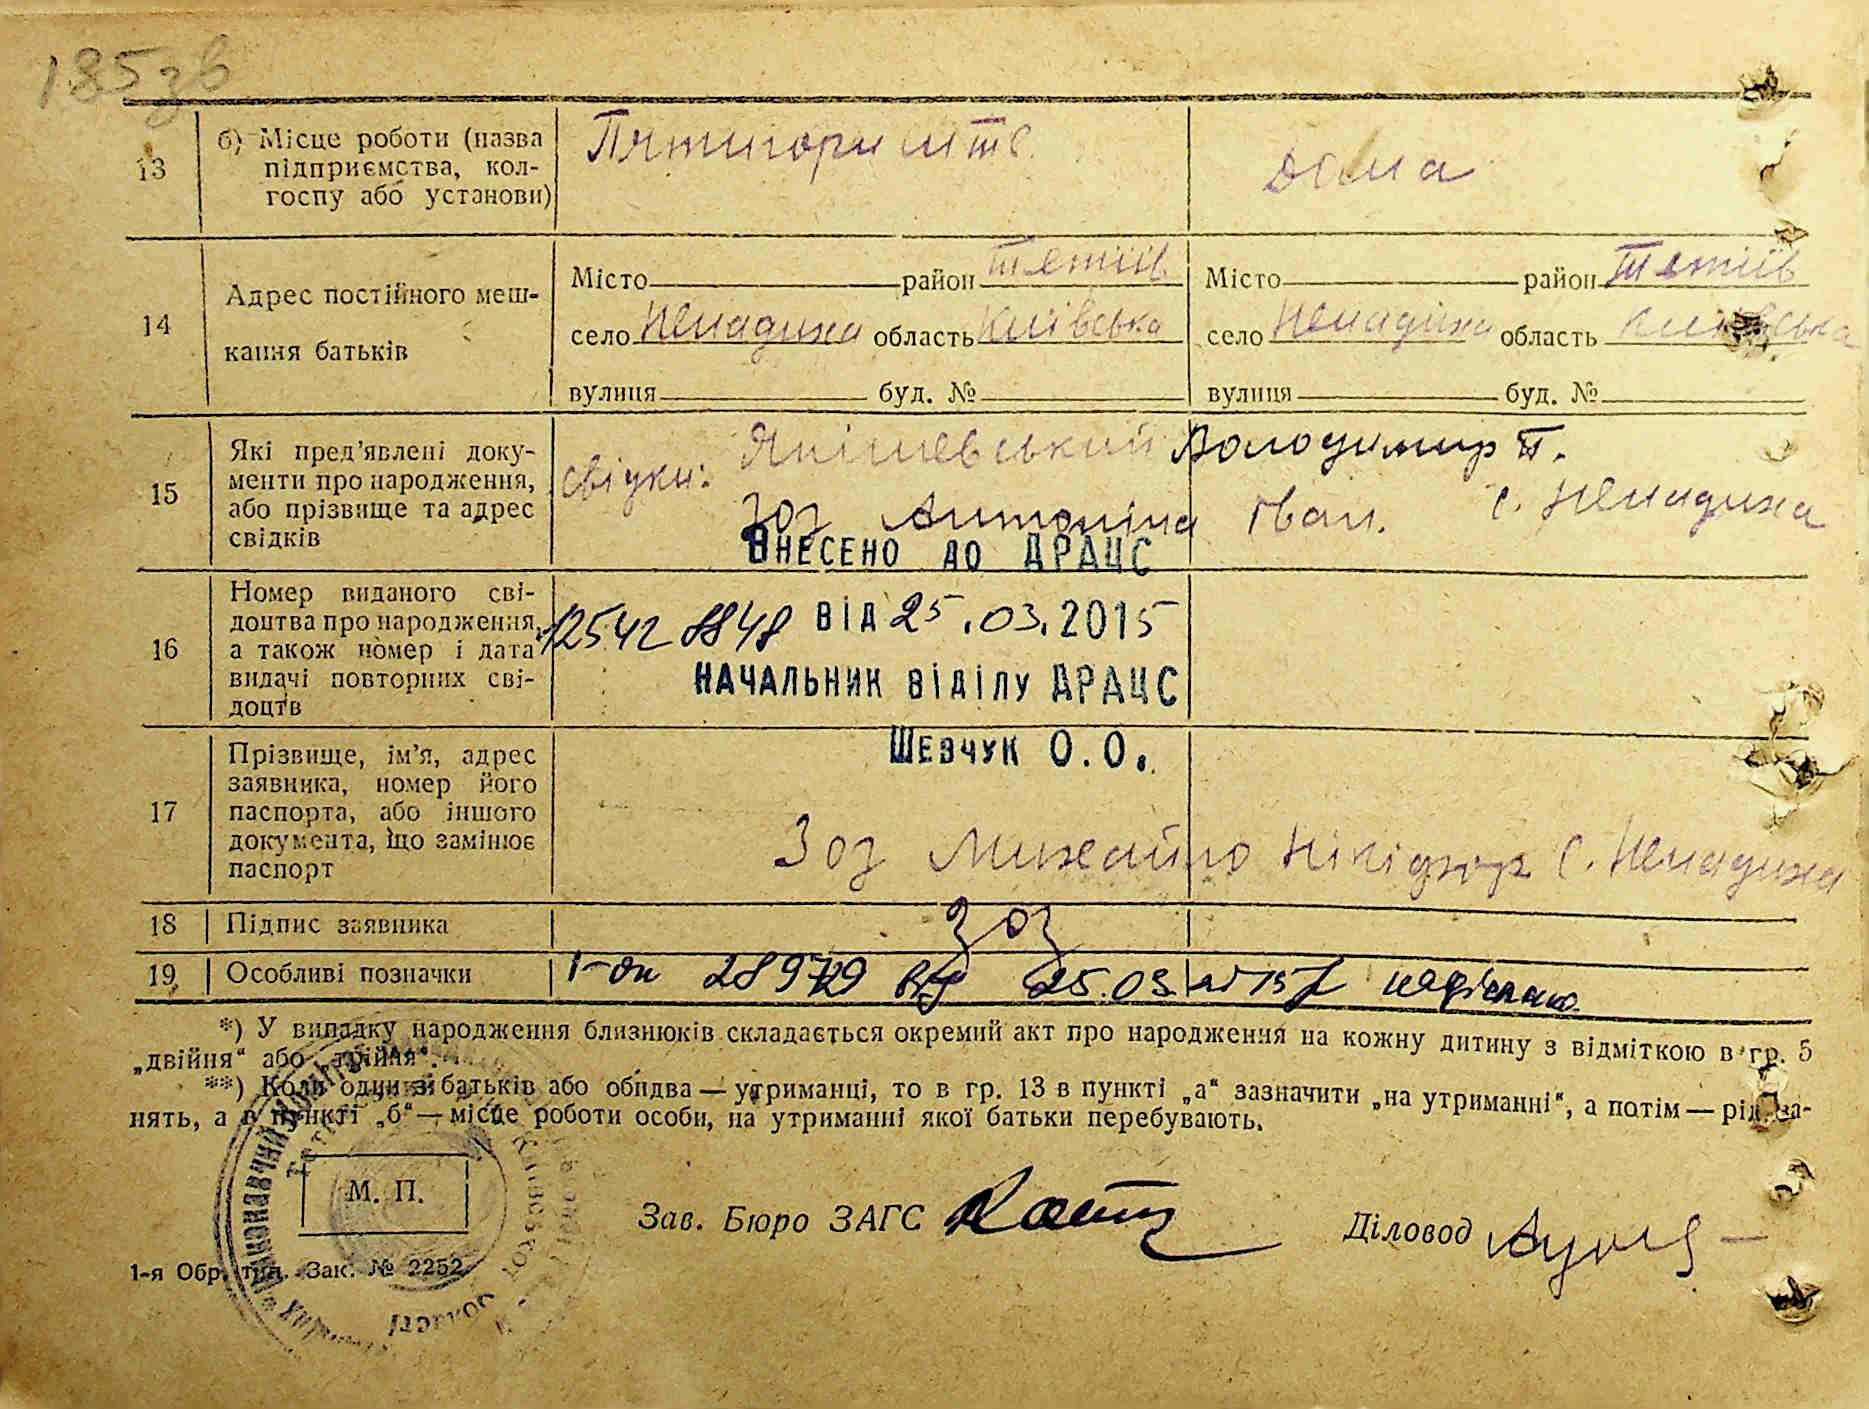 185зв
13 б) Місце роботи (назва
підприємства, кол-
госпу або установи)
дома
14 Адрес постійного меш-
кання батьків
Місто район Тетіїв Місто район Тетіїв
село Ненадиха область Київська село Ненадиха область Київська
вулиця буд. № вулиця буд. №
15 Які пред'явлені доку-
менти про народження,
або прізвище та адрес
свідків
свідки: Володимир П.
Зоз Антоніна Іван. с. Ненадиха
ВНЕСЕНО ДО ДРАЦС
16 Номер виданого сві-
доцтва про народження,
а також номер і дата
видачі повторних сві-
доцтв
12542 8848 ВІД 25.03.2015
НАЧАЛЬНИК ВІДІЛУ ДРАЦС
ШЕВЧУК О.О.
17 Прізвище, ім'я, адрес
заявника, номер його
паспорта, або іншого
документа, що замінює
паспорт
Зоз Михайло Нікіфор с. Ненадиха
18 Підпис заявника Зоз
19 Особливі позначки
25.03. надіслано.
*) У випадку народження близнюків складається окремий акт про народження на кожну дитину з відміткою в гр. 5
„двійня“ або „трійня“.
**) Коли один зі батьків або обидва — утриманці, то в гр. 13 в пункті „а“ зазначити „на утриманні“, а потім — рід за-
нять, а в пункті „б“ — місце роботи особи, на утриманні якої батьки перебувають.
М. П.
Зав. Бюро ЗАГС Діловод
1-я Обр. тип. Зак. № 2252